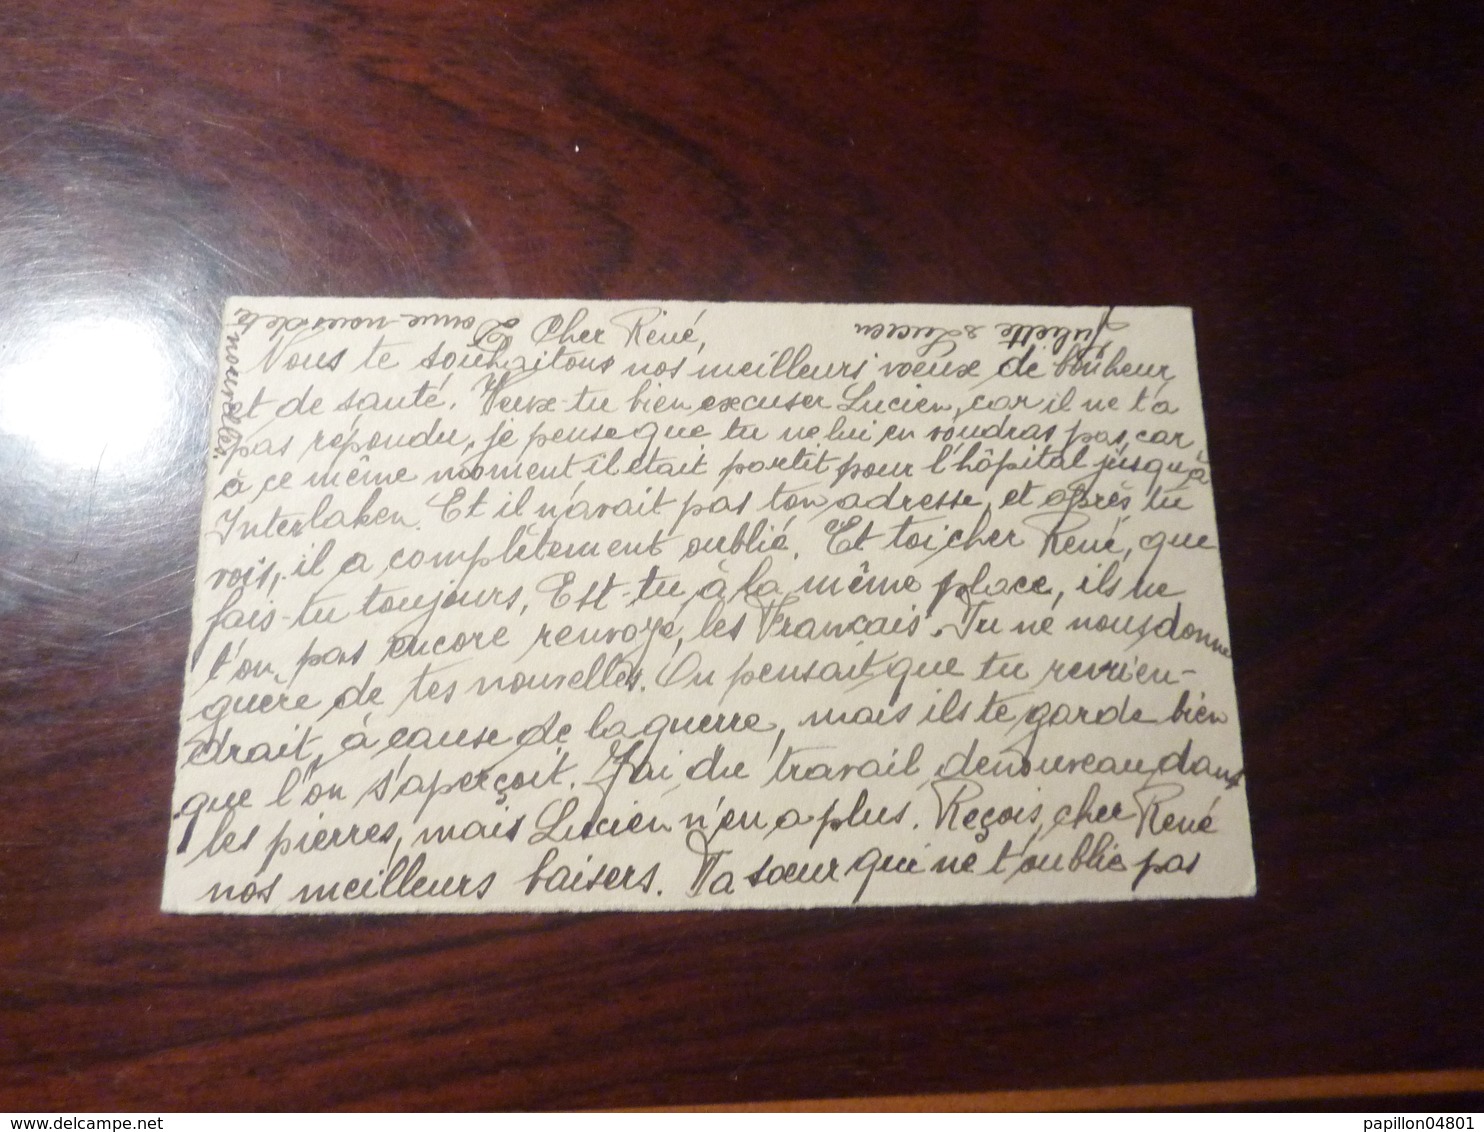 Cher René,
Nous te souhaitons nos meilleurs voeux de bonheur
et de santé. Veux-tu bien excuser Lucien, car il ne t'a
pas répondu, je pense que tu ne lui en voudras pas, car
à ce même moment, il était partit pour l'hôpital jusqu'à
Interlaken. Et il n'avait pas ton adresse, et après tu
vois, il a complètement oublié. Et toi cher René, que
fais-tu toujours, Est-tu à la même place, ils ne
t'on pas encore renvoyé, les Français. Tu ne nous donne
guère de tes nouvelles. On pensait que tu revien-
drait, à cause de la guerre, mais ils te garde bien
que l'on s'aperçoit. J'ai du travail, denouveau dans
les pierres, mais Lucien n'en a plus. Reçois, cher René
nos meilleurs baisers. Ta sœur qui ne t'oublie pas
Juliette & Lucien
Donne-nous de te
nouvelles.
papillon04801